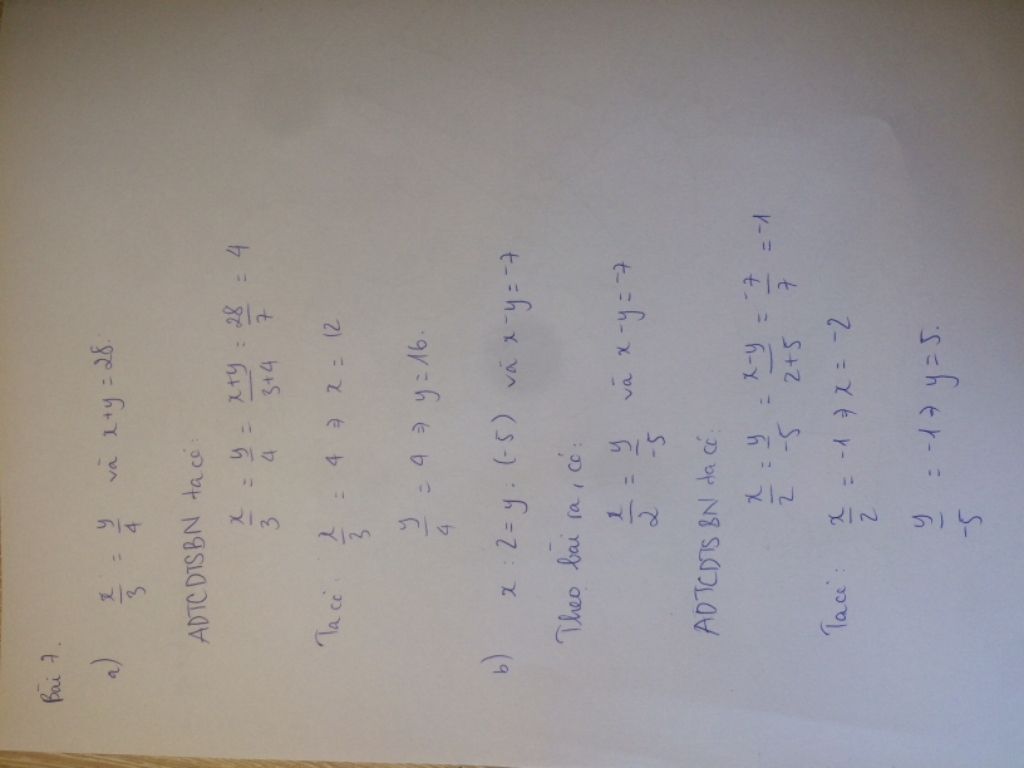 Bài 7.
a) x/3 = y/4 và x+y = 28.
ADTCDTSBN ta có:
x/3 = y/4 = x+y/3+4 = 28/7 = 4
Ta có: x/3 = 4 => x = 12
y/4 = 4 => y = 16.
b) x : 2 = y : (-5) và x-y = -7
Theo bài ra, có:
x/2 = y/-5 và x-y = -7
ADTCDTSBN ta có:
x/2 = y/-5 = x-y/2+5 = -7/7 = -1
Ta có: x/2 = -1 => x = -2
y/-5 = -1 => y = 5.